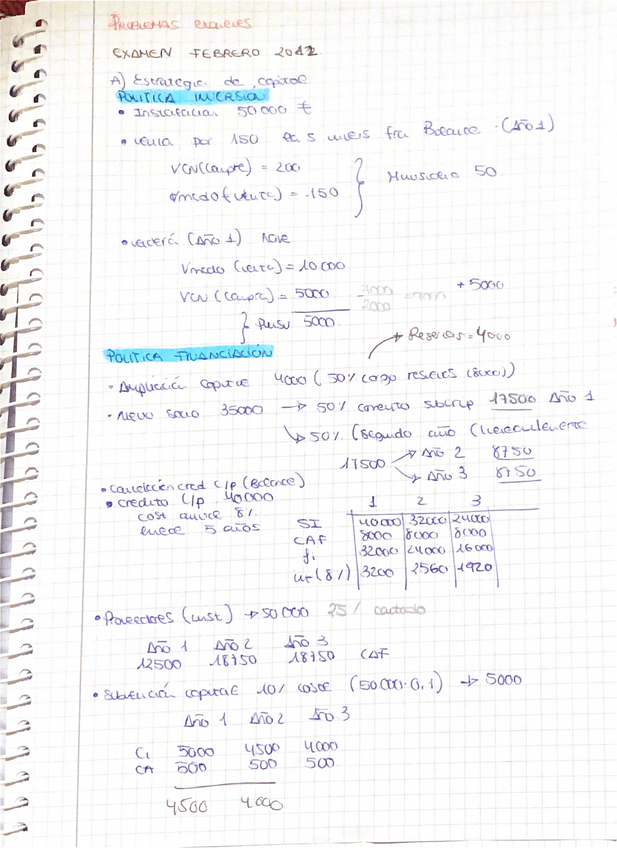 PROBLEMAS
EXAMEN FEBRERO 2012
A) Estrategia de capital
POLITICA INVERSIÓN
• Instalación 50 000 €
• venta por 150 Balance (Año 1)
VCN (compra) = 200
Vmdo (venta) = 150
} 50
• venderá (Año 1) nave
Vmdo (venta) = 10 000
VCN (compra) = 5000 + 5000
} 5000
POLITICA FINANCIACIÓN
→ Reservas = 4000
• Ampliación capital 4000 (50% cargo reservas (8000))
• Nuevo socio 35000 → 50% subscrip 17500 Año 1
↳ 50% (segundo año (linealmente
17500 → Año 2 8750
→ Año 3 8750
• Cancelación cred C/p (Balance)
• Crédito L/p 40000
8%
5 años
1 2 3
SI 40000 32000 24000
CAF 8000 8000 8000
32000 24000 16000
(8%) 3200 2560 1920
• Proveedores (inst) → 50 000 25% contado
Año 1 Año 2 Año 3
12500 18750 18750 CAF
• Subvención capital 10% coste (50 000·0,1) → 5000
Año 1 Año 2 Año 3
CI 5000 4500 4000
CA 500 500 500
4500 4000